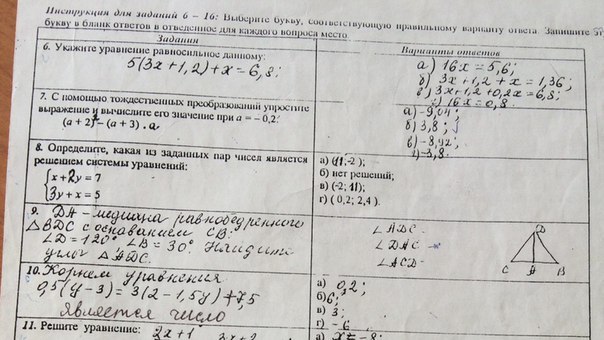 Инструкция для заданий 6 – 16: Выберите букву, соответствующую правильному варианту ответа. Запишите эт
букву в бланк ответов в отведенное для каждого вопроса место.
Задания
Варианты ответов
6. Укажите уравнение равносильное данному:
5(3x+1,2)+x=6,8;
а) 16x=5,6;
б) 3x+1,2+x=1,36;
в) 3x+1,2+0,2x=6,8;
г) 16x=0,8
7. С помощью тождественных преобразований упростите
выражение и вычислите его значение при a = – 0,2:
(a + 2)² – (a + 3) · a
а) -9,04;
б) 3,8;
в) -3,92;
г) -3,8
8. Определите, какая из заданных пар чисел является
решением системы уравнений:
x+2y = 7
3y + x = 5
а) (11;-2 );
б) нет решений;
в) (-2; 11);
г) ( 0,2; 2,4 ).
9. DA - медиана равнобедренного
△BDC с основанием CB.
∠D=120°, ∠B=30°. Найдите
углы △ADC.
∠ADC-
∠DAC -
∠ACD-
D
C A B
10. Корнем уравнения
0,5(y-3)=3(2-1,5y)+7,5
является число
а) 0,2;
б) 6;
в) 3;
г) -6
11. Решите уравнение:
2x+1
а) x=-8;